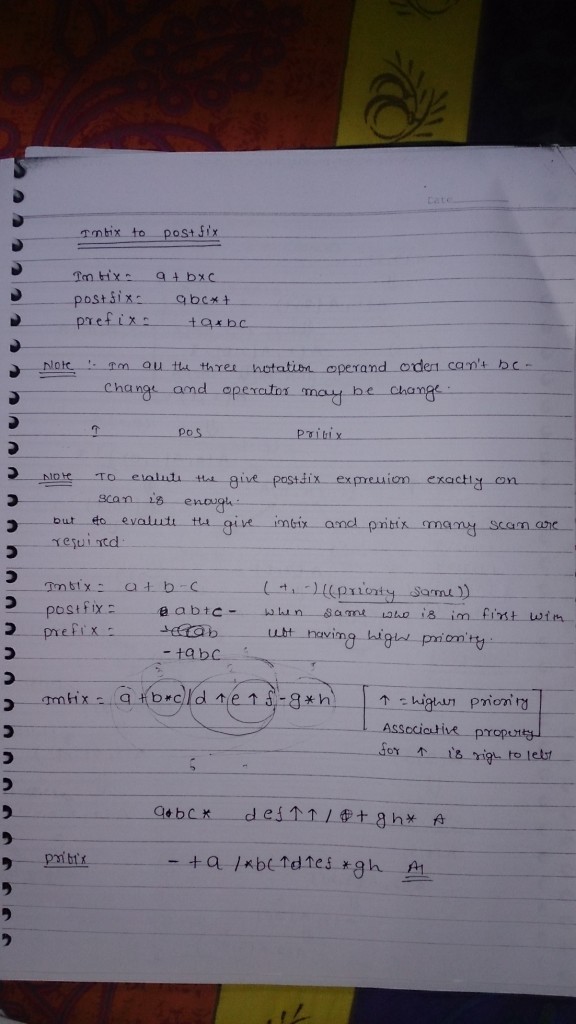 Date
Infix to postfix
Infix = a + b×c
postfix = abc*+
prefix = +a*bc
Note :- In all the three notation operand order can't be -
change and operator may be change.
I pos prifix
Note To evalute the give postfix expression exactly on
scan is enough.
but to evalute the give infix and prifix many scan are
required.
Infix = a + b - c (+, -) ((priorty same))
postfix = ab+c- when same who is in first with
prefix = left having high priority.
-+abc
Infix = a + b*c / d ↑ e ↑ f - g * h [ ↑ = higher priority
Associative property ]
for ↑ is righ to left
5
abc* def↑↑/ + gh* A
prifix - +a /*bc↑d↑ef *gh A